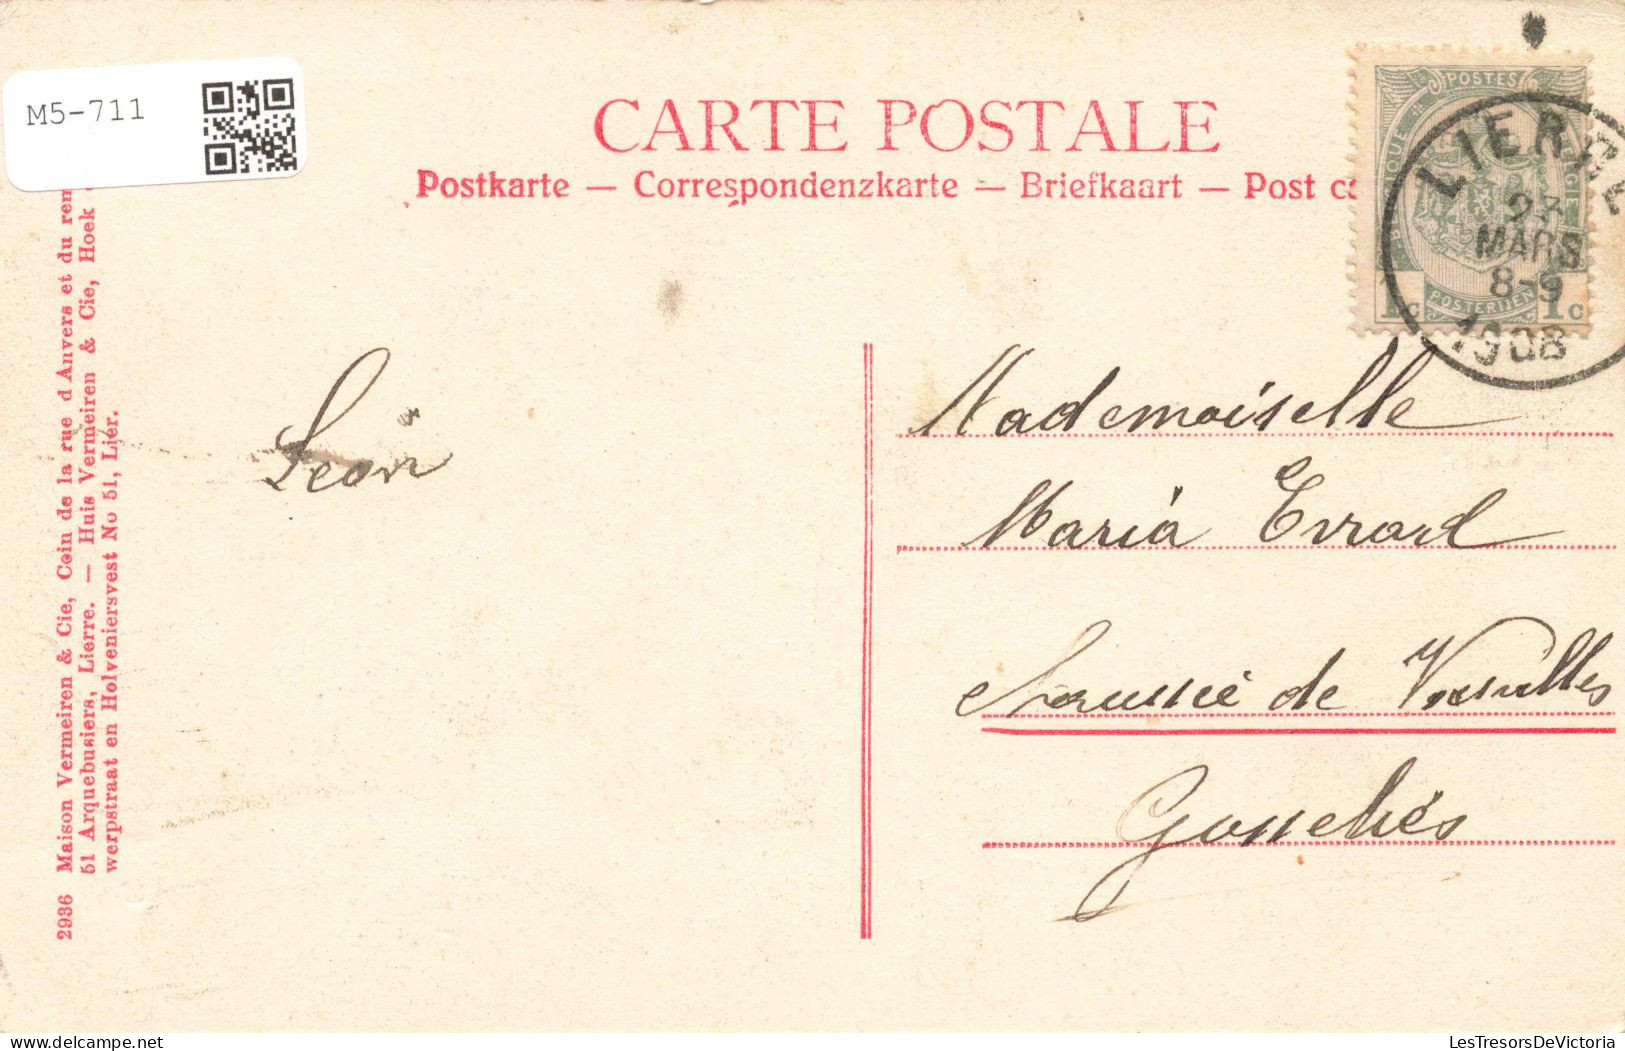 M5-711
CARTE POSTALE
Postkarte — Correspondenzkarte — Briefkaart — Post
POSTES
BELGIQUE
BELGIË
POSTERIJEN
1c 1c
LIERRE
MARS
8-9
1908
Léon
Mademoiselle
Maria Evrard
de
2936 Maison Vermeiren & Cie, Coin de la rue d Anvers et du rem
51 Arquebusiers, Lierre. — Huis Vermeiren & Cie, Hoek
werpstraat en Holveniersvest No 51, Lier.
LesTresorsDeVictoria
delcampe.net